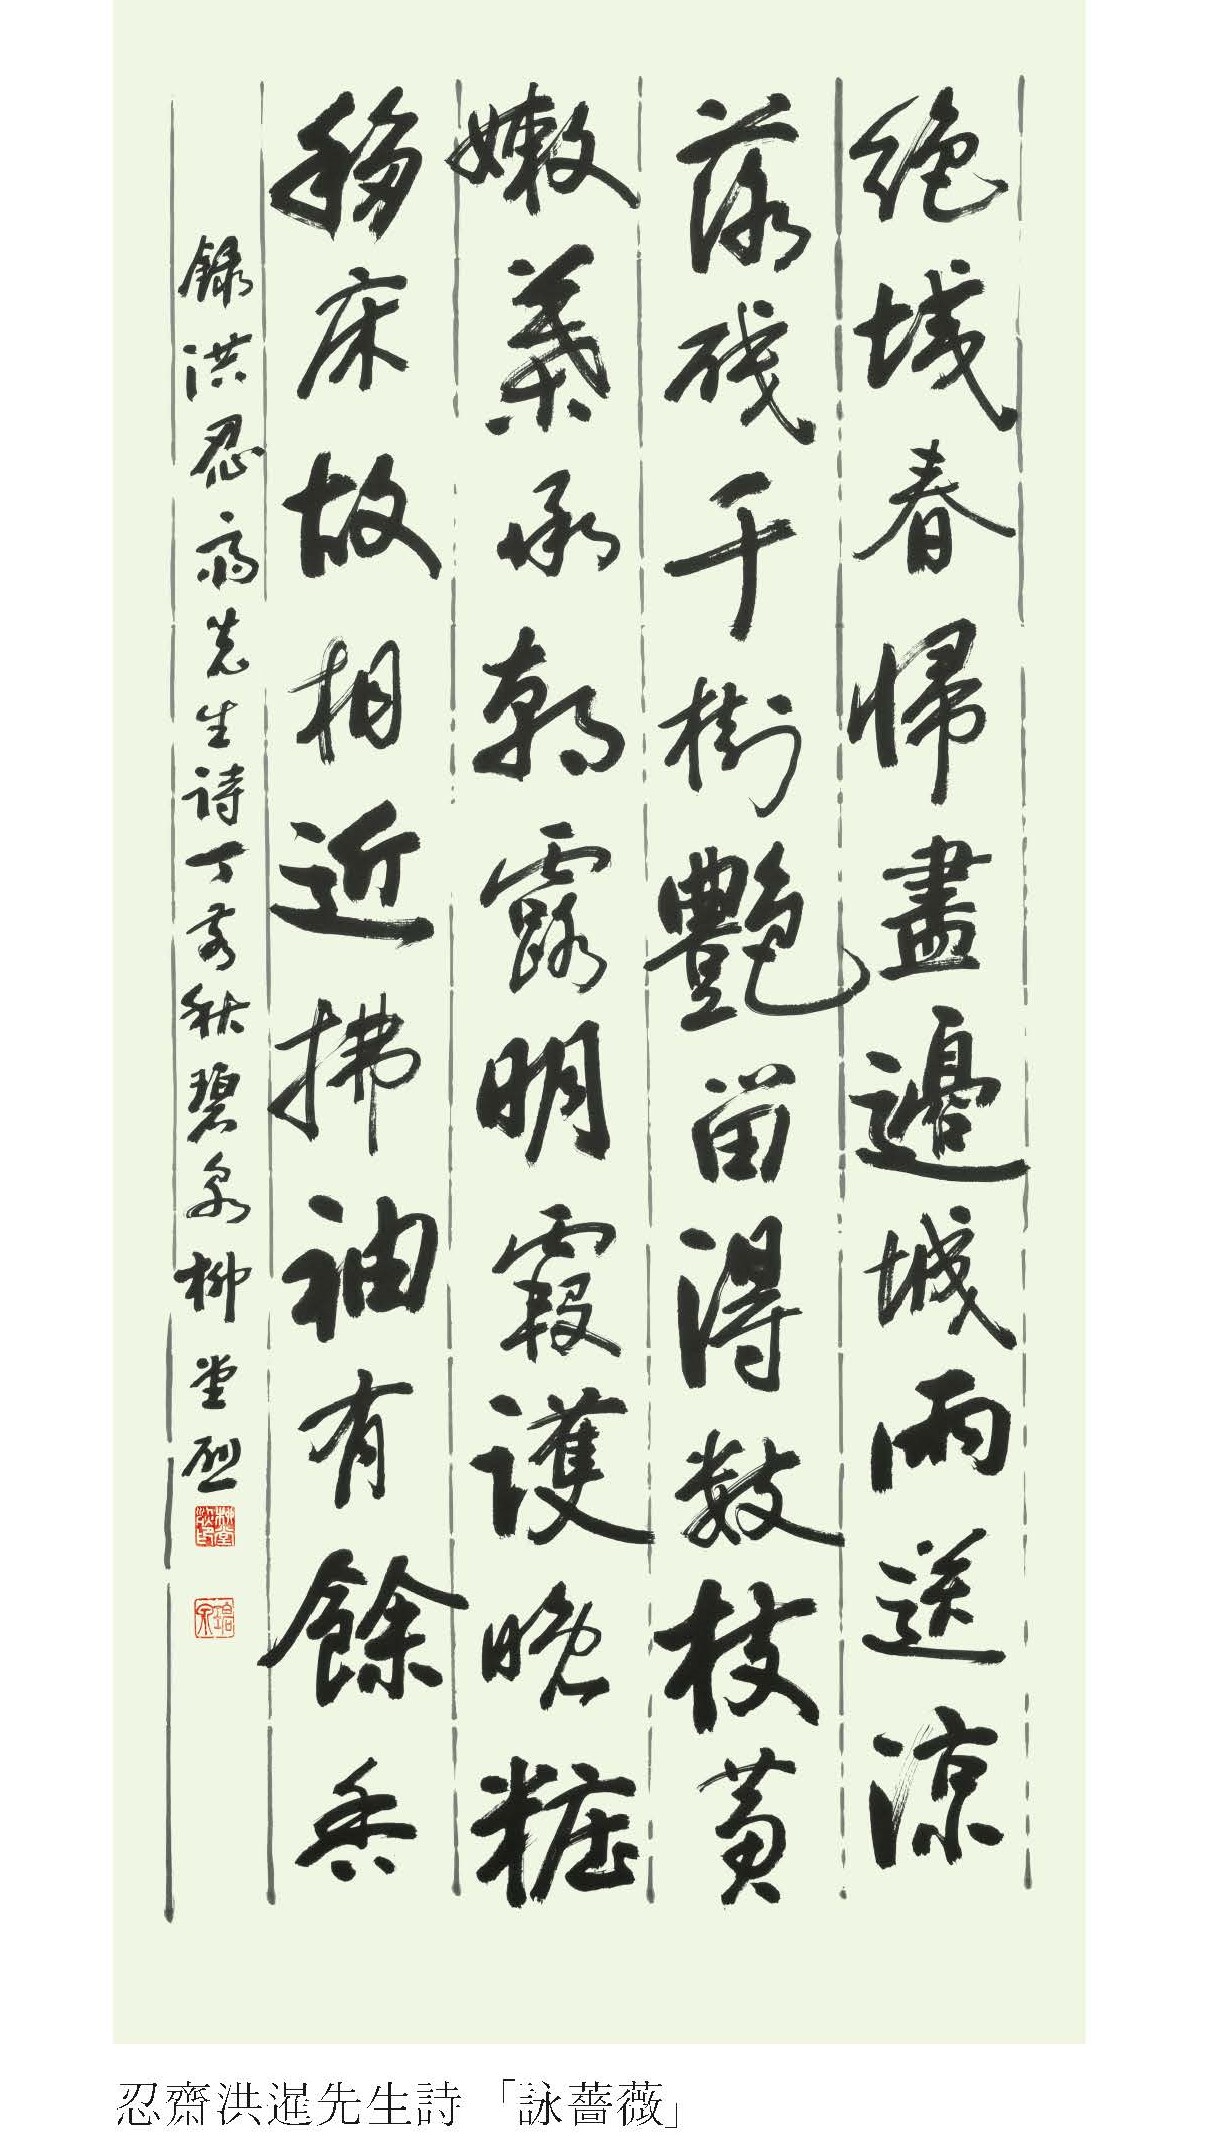 絶域春歸盡邊城雨送凉
落殘千樹艶留得數枝黃
嫩葉承朝露明霞護晚粧
移床故相近拂袖有餘香
錄洪忍齋先生詩丁亥秋碧泉柳堂烈
忍齋洪暹先生詩 「詠薔薇」